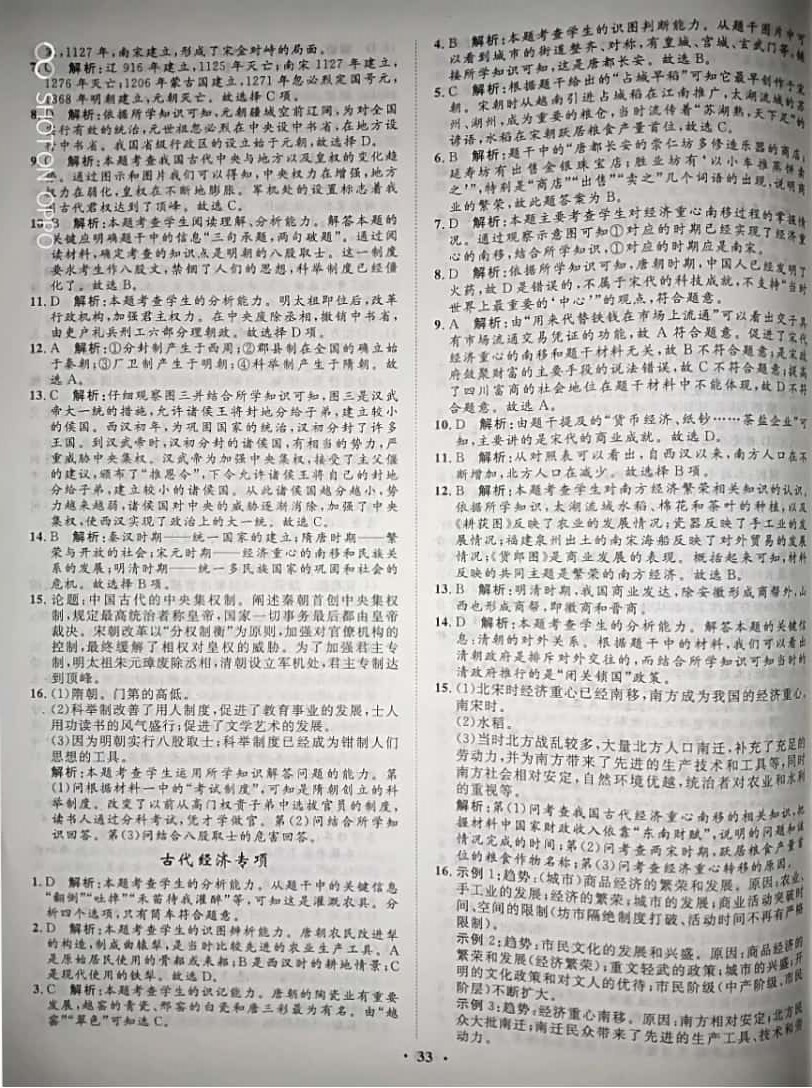 ,1127年,南宋建立,形成了宋金对峙的局面。
7. C 解析:辽916年建立,1125年灭亡;南宋1127年建立,
1276年灭亡;1206年蒙古国建立,1271年忽必烈定国号元,
1368年明朝建立,元朝灭亡。故选C项。
8. 解析:依据所学知识可知,元朝疆域空前辽阔,为对全国
行有效的统治,元世祖忽必烈在中央设中书省,在地方设
中书省。我国省级行政区的设立始于元朝,故选择D。
9. 解析:本题考查我国古代中央与地方以及皇权的变化趋
。通过图示和图片我们可以得知,中央权力在增强,地方
权力在弱化;皇权在不断地膨胀。军机处的设置标志着我
古代君权达到了顶峰。故选C。
10. B 解析:本题考查学生阅读理解、分析能力。解答本题的
关键应明确题干中的信息“三句承题,两句破题”。通过阅
读材料,确定考查的知识点是明朝的八股取士。这一制度
要求考生作八股文,禁锢了人们的思想,科举制度已经僵
化了。故选B。
11. D 解析:本题考查学生的分析能力。明太祖即位后,改革
行政机构,加强君主权力。在中央废除丞相,撤销中书省,
由吏户礼兵刑工六部分理朝政。故选择D项。
12. A 解析:①分封制产生于西周;②郡县制在全国的确立始
于秦朝;③厂卫制产生于明朝;④科举制产生于隋朝。故
选A。
13. C 解析:仔细观察图三并结合所学知识可知,图三是汉武
帝大一统的措施,允许诸侯王将封地分给子弟,建立较小
的侯国。西汉初年,为巩固国家的统治,汉初分封了许多
王国。到汉武帝时,汉初分封的诸侯国,有相当的势力,严
重威胁中央集权。汉武帝为加强中央集权,接受了主父偃
的建议,颁布了“推恩令”,下令允许诸侯王将自己的封地
分给子弟,建立较小的诸侯国。从此诸侯国越分越小,势
力越来越弱,诸侯国对中央的威胁逐渐消除,加强了中央
集权,使西汉实现了政治上的大一统。故选C。
14. B 解析:秦汉时期——统一国家的建立;隋唐时期——繁
荣与开放的社会;宋元时期——经济重心的南移和民族关
系的发展;明清时期——统一多民族国家的巩固和社会的
危机。故选择B项。
15. 论题:中国古代的中央集权制。阐述秦朝首创中央集权
制,规定最高统治者称皇帝,国家一切事务最后都由皇帝
裁决。宋朝改革以“分权制衡”为原则,加强对官僚机构的
控制,最终缓解了相权对皇权的威胁。为了加强君主专
制,明太祖朱元璋废除丞相;清朝设立军机处,君主专制达
到顶峰。
16. (1)隋朝。门第的高低。
(2)科举制改善了用人制度,促进了教育事业的发展,士人
用功读书的风气盛行;促进了文学艺术的发展。
(3)因为明朝实行八股取士;科举制度已经成为钳制人们
思想的工具。
解析:本题考查学生运用所学知识解答问题的能力。第
(1)问根据材料一中的“考试制度”,可知是隋朝创立的科
举制度。改变了以前从高门权贵子弟中选拔官员的制度,
读书人通过分科考试,凭才学做官。第(2)问结合所学知
识回答。第(3)问结合八股取士的危害回答。
古代经济专项
1. D 解析:本题考查学生的分析能力。从题干中的关键信息
“翻倒”“吐捽”“禾苗待我灌醉”等,可知这是灌溉农具。分
析四个选项,只有筒车符合题意。
2. D 解析:本题考查学生的识图辨析能力。唐朝农民改进犁
的构造,制成曲辕犁,是当时比较先进的农业生产工具。A
是原始居民使用的骨耜或耒耜;B是西汉时的耕地情景;C
是现代使用的铁犁。故选D。
3. C 解析:本题考查学生的识记能力。唐朝的陶瓷业有重要
发展,越窑的青瓷、邢窑的白瓷和唐三彩最为有名。由“越
窑”“翠色”可知选C。
4. B 解析:本题考查学生的识图判断能力。从题干图片中可
以看到城市的街道整齐、对称,有皇城、宫城、玄武门等,
接所学知识可知,这是唐都长安。故选B。
5. C 解析:根据题干给出的“占城早稻”可知它最早创作于
朝。宋朝时从越南引进占城稻在江南推广,太湖流域的
州、湖州,成为重要的粮仓,当时流传着“苏湖熟,天下足”的
谚语,水稻在宋朝跃居粮食产量首位,故选C。
6. B 解析:题干中的“唐都长安的崇仁坊多修造乐器的商店;
延寿坊有出售金银珠宝店;胜业坊有‘以小车推蒸饼卖
之’”,特别是“商店”“出售”“卖之”几个词语的出现,说明
业的繁荣,故此题答案为B。
7. D 解析:本题主要考查学生对经济重心南移过程的掌握情
况。通过观察示意图可知①对应的时期已经实现了经济重
心的南移,结合所学知识,①对应的时期应是南宋。
8. D 解析:依据所学知识可知,唐朝时期,中国人已经发明了
火药,故D是错误的,不属于宋代的科技成就,不支持“当时
世界上最重要的‘中心’”的观点,符合题意。
9. A 解析:由“用来代替铁钱在市场上流通”可以看出交子具
有市场流通交易凭证的功能,故A符合题意。促进了宋代
经济重心的南移和题干材料无关,故B不符合题意;是宋政
府敛聚财富的主要手段的说法错误,故C不符合题意;提高
了四川富商的社会地位在题干材料中不能体现,故D不符
合题意。故选A。
10. D 解析:由题干提及的“货币经济、纸钞……茶盐企业”可
知,主要讲的是宋代的商业成就。故选D。
11. B 解析:从对照表可以看出,自西汉以来,南方人口在不
断增加,北方人口在减少。故选择B项。
12. B 解析:本题考查学生对南方经济繁荣相关知识的认识。
依据所学知识,太湖流域水稻、棉花和茶叶的种植,以及
《耕获图》反映了农业的发展情况;瓷器反映了手工业的发
展情况;福建泉州出土的南宋海船反映了对外贸易的发展
情况;《货郎图》是商业发展的表现。概括起来可知,材料
反映的共同主题是繁荣的南方经济。故选B。
13. B 解析:明清时期,我国商业发达,除安徽形成商帮外,山
西也形成商帮,即徽商和晋商。
14. D 解析:本题考查学生的分析能力。解答本题的关键信
息:清朝的对外关系。根据题干中的材料,我们可以看出
清朝政府是排斥对外交往的,而结合所学知识可知当时的
清政府推行的是“闭关锁国”政策。
15. (1)北宋时经济重心已经南移,南方成为我国的经济重心,
南宋时。
(2)水稻。
(3)当时北方战乱较多,大量北方人口南迁,补充了充足的
劳动力,并为南方带来了先进的生产技术和工具等,同时
南方社会相对安定,自然环境优越,统治者对农业和水利
的重视等。
解析:第(1)问考查我国古代经济重心南移的相关知识,把
握材料中国家财政收入依靠“东南财赋”,说明的问题和该
情况完成的时间;第(2)问考查两宋时期,跃居粮食产量首
位的粮食作物名称;第(3)问考查经济重心转移的原因。
16. 示例1:趋势:(城市)商品经济的繁荣和发展。原因:农业、
手工业的发展;经济的繁荣;城市的发展;商业活动突破时
间、空间的限制(坊市隔绝制度打破、活动时间不再有严格
限制)。
示例2:趋势:市民文化的发展和兴盛。原因:商品经济的
繁荣和发展(经济繁荣);重文轻武的政策;城市的兴盛;开
明的文化政策和对文人的优待;市民阶级(中产阶级、市民
阶层)不断扩大。
示例3:趋势:经济重心南移。原因:南方相对安定;北方民
众大批南迁;南迁民众带来了先进的生产工具、技术和劳
动力。
· 33 ·
SHOT ON OPPO